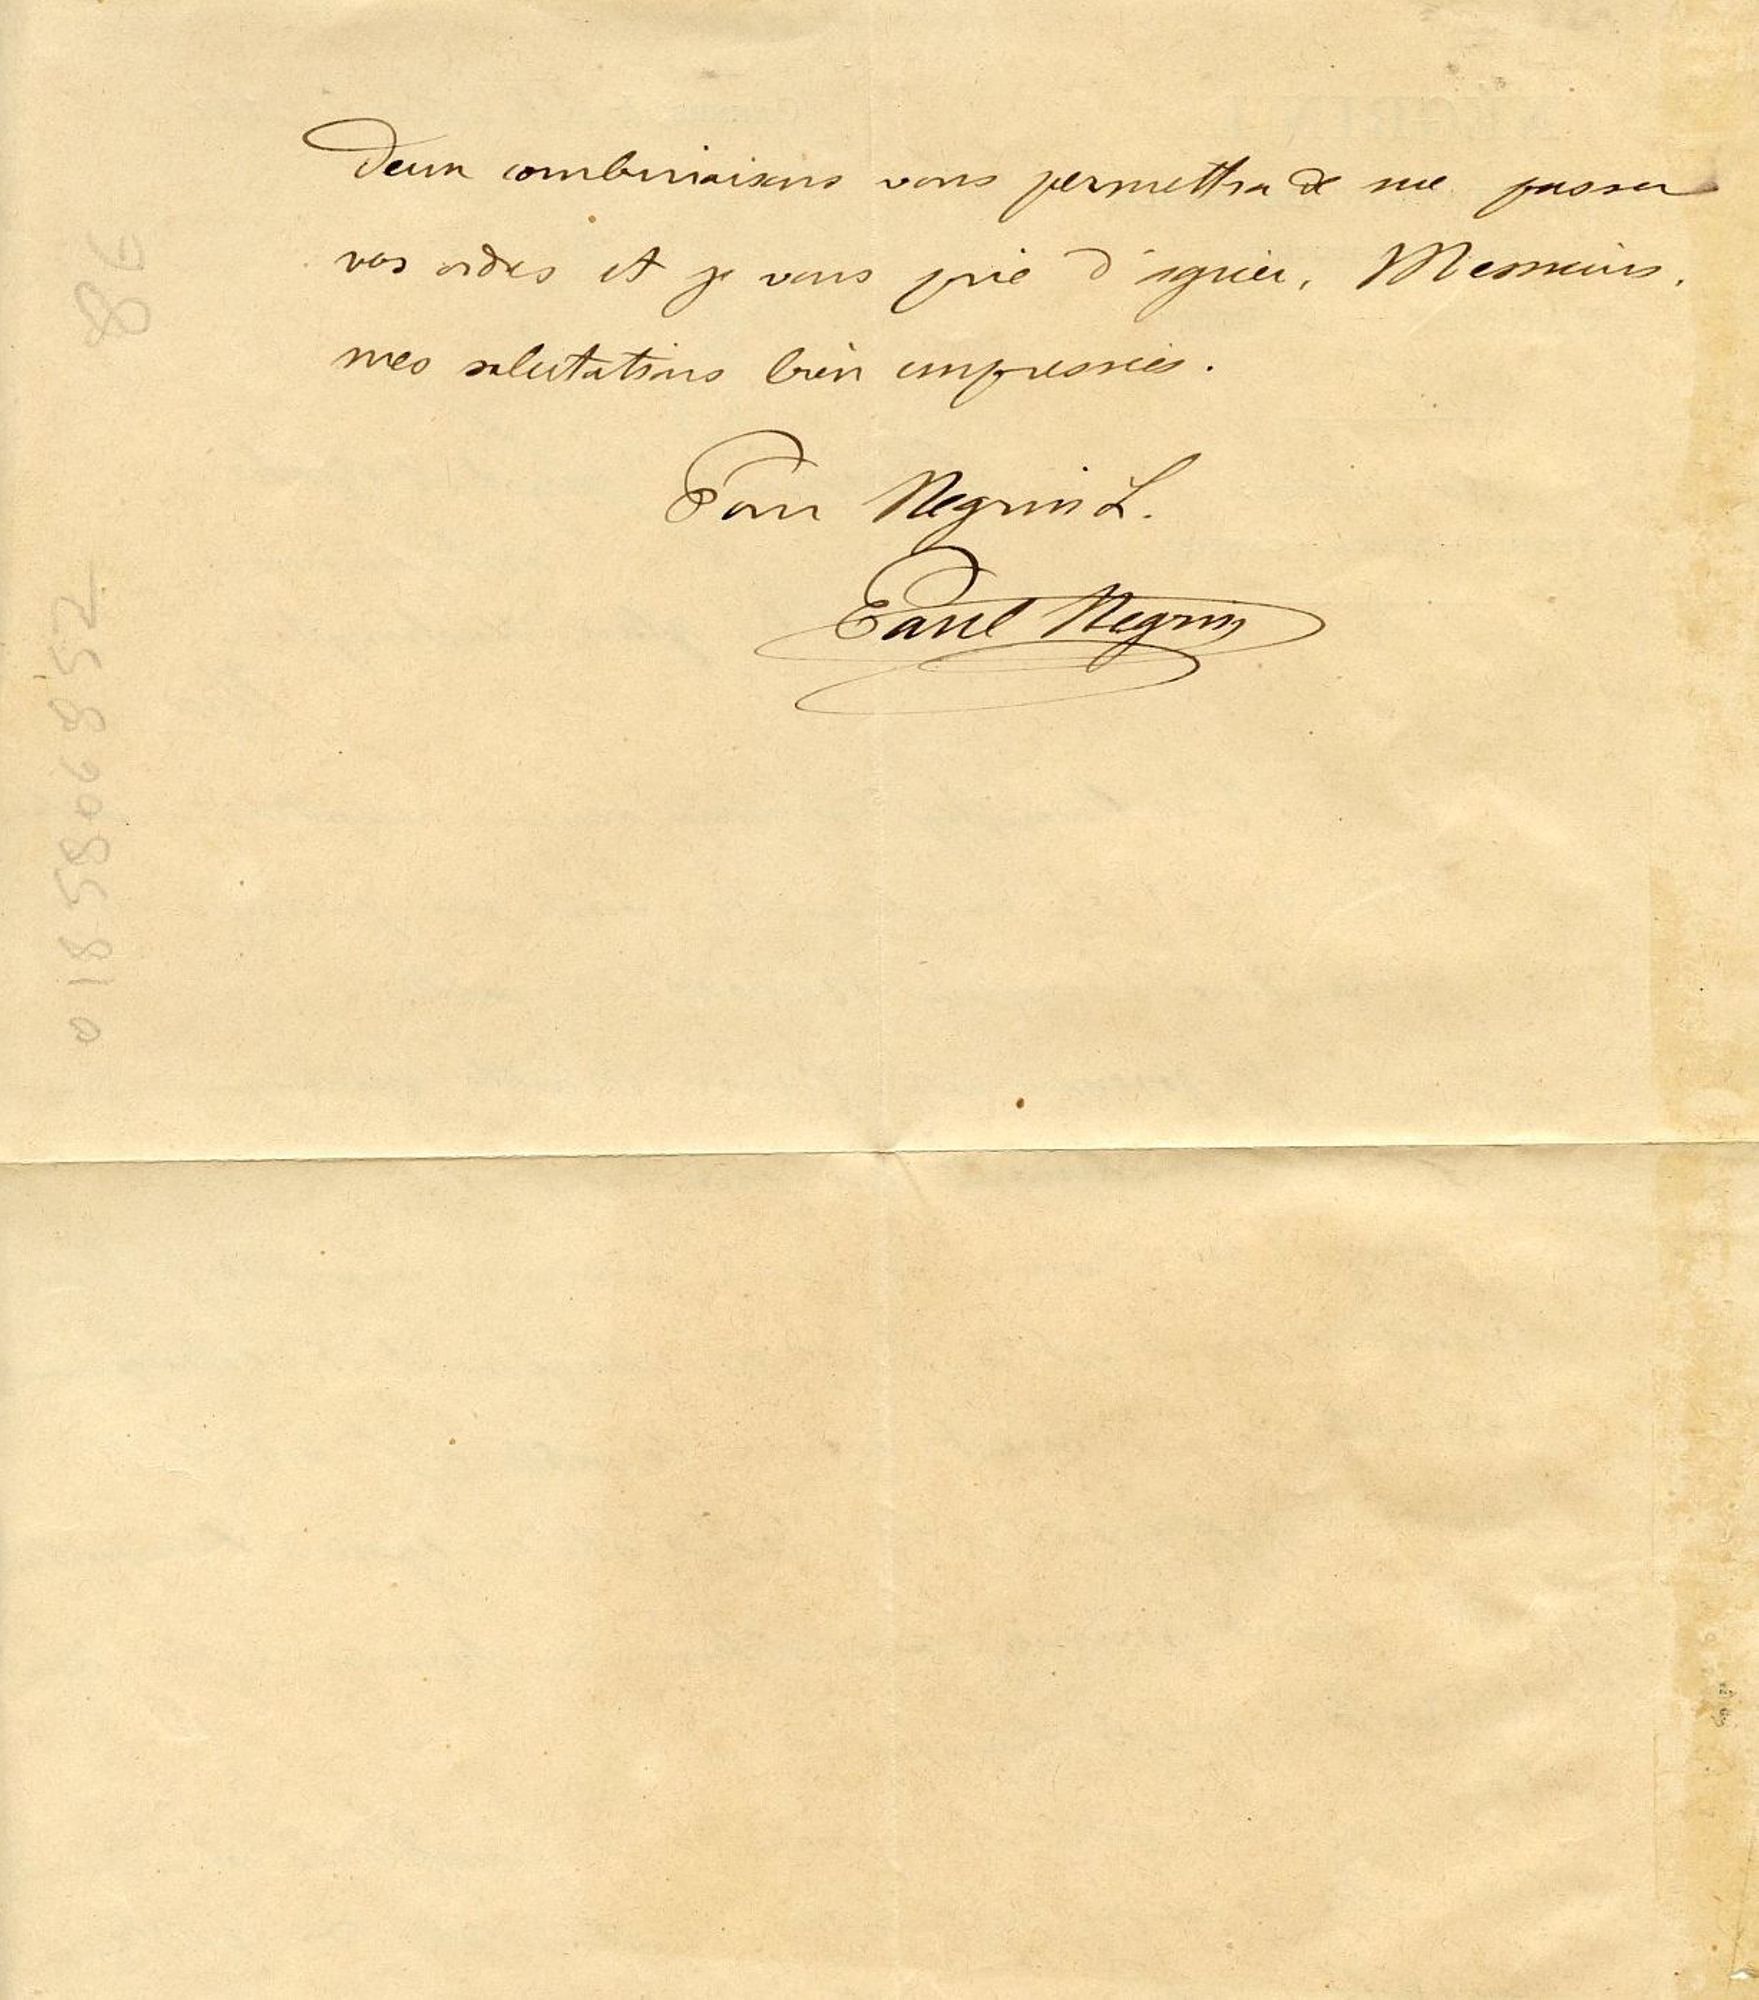 deux combinaisons vous permettra de me passer
vos ordres et je vous prie d'agréer, Messieurs,
mes salutations bien empressées.
Pour Negrin L.
Paul Negrin